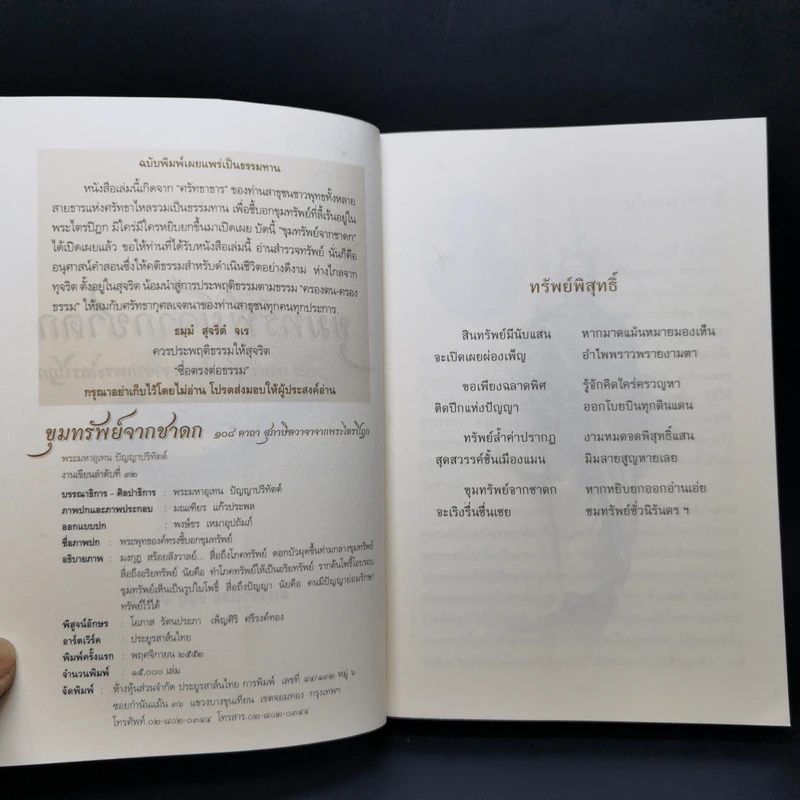 ฉบับพิมพ์เผยแพร่เป็นธรรมทาน
หนังสือเล่มนี้เกิดจาก "ศรัทธาธาร" ของท่านสาธุชนชาวพุทธทั้งหลาย
สายธารแห่งศรัทธาไหลรวมเป็นธรรมทาน เพื่อชี้บอกขุมทรัพย์ที่ลี้เร้นอยู่ใน
พระไตรปิฎก มิใคร่มีใครหยิบยกขึ้นมาเปิดเผย บัดนี้ "ขุมทรัพย์จากชาดก"
ได้เปิดเผยแล้ว ขอให้ท่านที่ได้รับหนังสือเล่มนี้ อ่านสำรวจทรัพย์ นั่นก็คือ
อนุศาสน์คำสอนซึ่งให้คติธรรมสำหรับดำเนินชีวิตอย่างดีงาม ห่างไกลจาก
ทุจริต ตั้งอยู่ในสุจริต น้อมนำสู่การประพฤติธรรมตามธรรม "ครองตน-ครอง
ธรรม" ให้สมกับศรัทธากุศลเจตนาของท่านสาธุชนทุกคนทุกประการ.
ธมฺมํ สุจริตํ จเร
ควรประพฤติธรรมให้สุจริต
"ซื่อตรงต่อธรรม"
กรุณาอย่าเก็บไว้โดยไม่อ่าน โปรดส่งมอบให้ผู้ประสงค์อ่าน
ขุมทรัพย์จากชาดก ๑๐๘ คาถา สุภาษิตวาจาจากพระไตรปิฎก
พระมหาอุเทน ปัญญาปริทัตต์
งานเขียนลำดับที่ ๓๒
บรรณาธิการ - ศิลปาธิการ : พระมหาอุเทน ปัญญาปริทัตต์
ภาพปกและภาพประกอบ : มณเฑียร แก้วประพล
ออกแบบปก : พงษ์ธร เหมาอุปถัมภ์
ชื่อภาพปก : พระพุทธองค์ทรงชี้บอกขุมทรัพย์
อธิบายภาพ : มงกุฎ สร้อยสังวาลย์... สื่อถึงโภคทรัพย์ ดอกบัวผุดขึ้นท่ามกลางขุมทรัพย์
สื่อถึงอริยทรัพย์ นัยคือ ทำโภคทรัพย์ให้เป็นอริยทรัพย์ รากต้นโพธิ์โอบรอบ
ขุมทรัพย์เห็นเป็นรูปใบโพธิ์ สื่อถึงปัญญา นัยคือ คนมีปัญญาย่อมรักษา
ทรัพย์ไว้ได้
พิสูจน์อักษร : โอภาส รัตนประภา เพ็ญศิริ ศรีรงค์ทอง
อาร์ตเวิร์ค : ประยูรสาส์นไทย
พิมพ์ครั้งแรก : พฤศจิกายน ๒๕๕๒
จำนวนพิมพ์ : ๑๕,๐๐๐ เล่ม
จัดพิมพ์ : ห้างหุ้นส่วนจำกัด ประยูรสาส์นไทย การพิมพ์ เลขที่ ๔๔/๑๓๒ หมู่ ๖
ซอยกำนันแม้น ๓๖ แขวงบางขุนเทียน เขตจอมทอง กรุงเทพฯ
โทรศัพท์.๐๒-๘๐๒-๐๓๔๔ โทรสาร.๐๒-๘๐๒-๐๓๔๔
ทรัพย์พิสุทธิ์
สินทรัพย์มีนับแสน หากมาดแม้นหมายมองเห็น
จะเปิดเผยผ่องเพ็ญ อำไพพราวพรายงามตา
ขอเพียงฉลาดพิศ รู้จักคิดใคร่ครวญหา
ติดปีกแห่งปัญญา ออกโบยบินทุกดินแดน
ทรัพย์ล้ำค่าปรากฏ งามหมดจดพิสุทธิ์แสน
สุดสวรรค์ชั้นเมืองแมน มิมลายสูญหายเลย
ขุมทรัพย์จากชาดก หากหยิบยกออกอ่านเอ่ย
จะเริงรื่นชื่นเชย ชมทรัพย์ชั่วนิรันดร ฯ